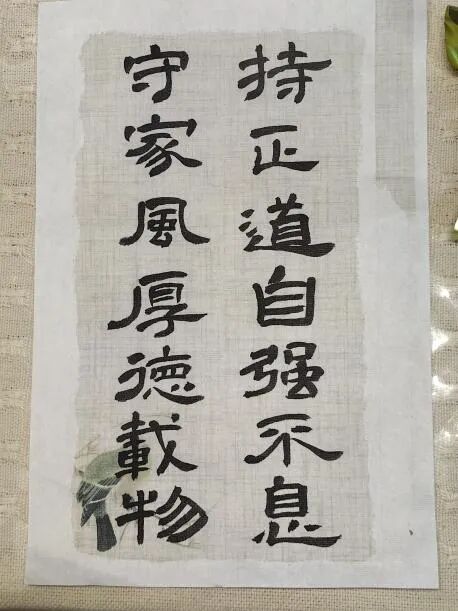 持正道自强不息
守家風厚德載物